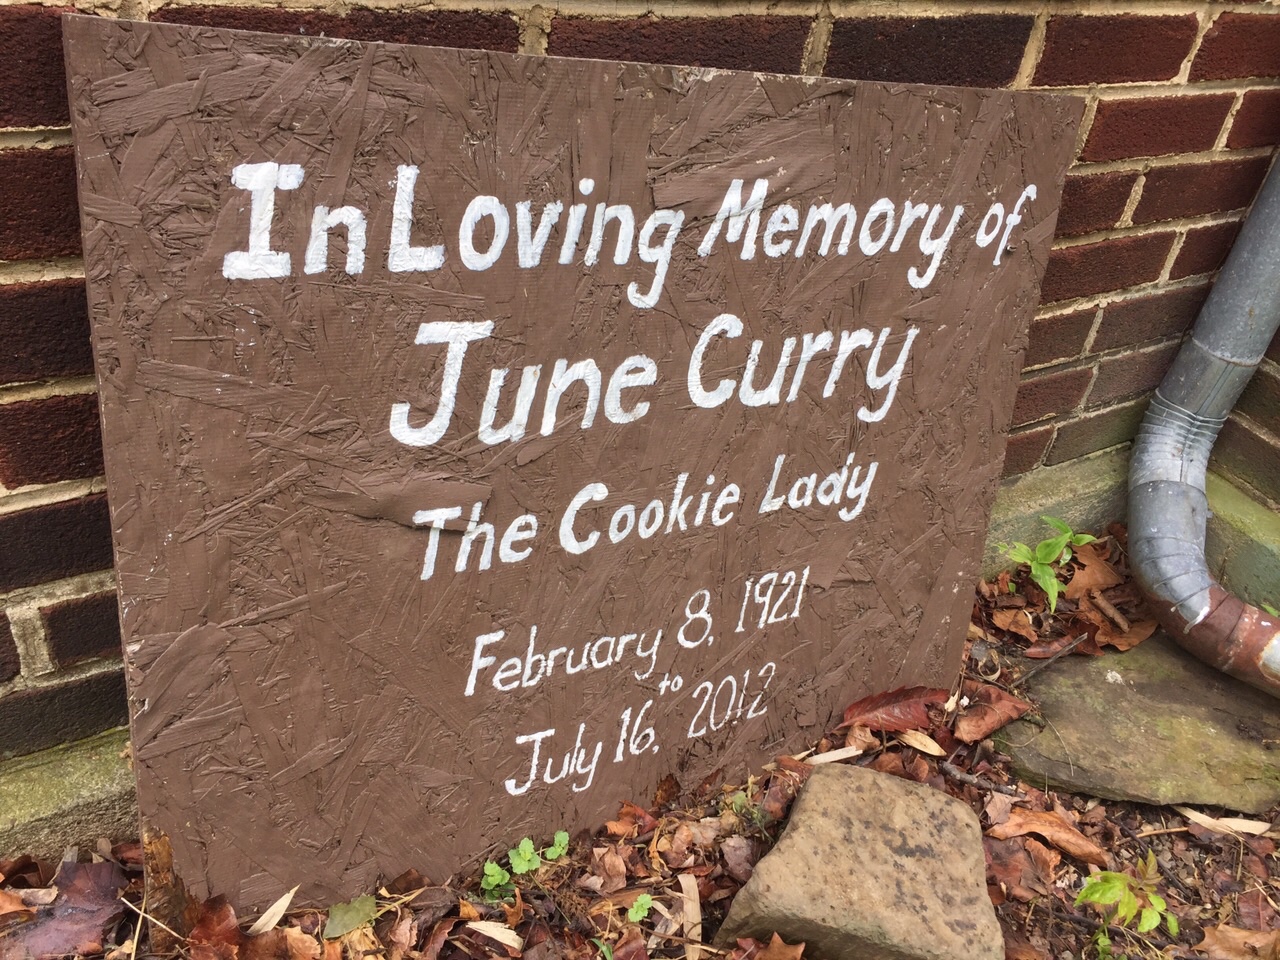 In Loving Memory of
June Curry
The Cookie Lady
February 8, 1921
to
July 16, 2012